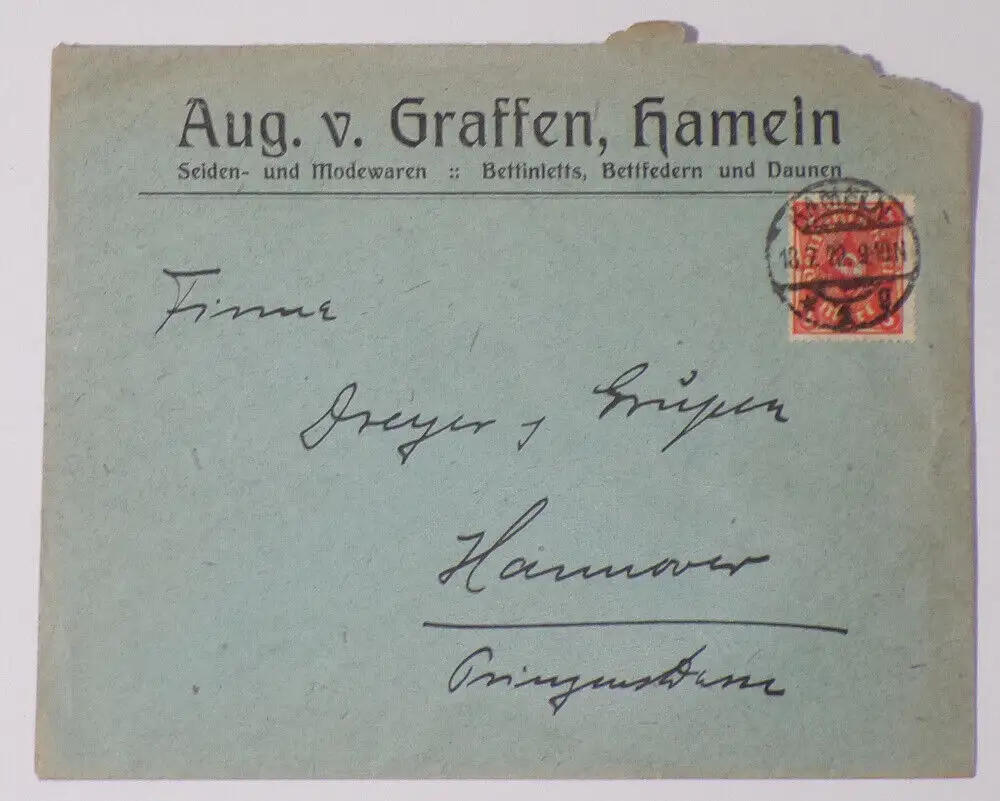 Aug. v. Graffen, Hameln
Seiden- und Modewaren :: Bettinletts, Bettfedern und Daunen
HAMELN
13.7.22. 9-10N
* a g
Firma
Dreyer & Grüpen
Hannover
Prinzenstrasse